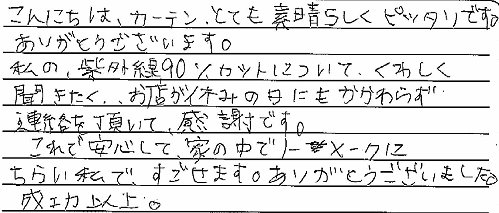 こんにちは、カーテン、とても素晴らしくピッタリです。
ありがとうございます。
私の、紫外線90%カットについて、くわしく
聞きたく、お店が休みの日にもかかわらず
連絡を頂いて、感謝です。
これで安心して、家の中でノーメークに
ちかい私で、すごせます。ありがとうございました。
以上。